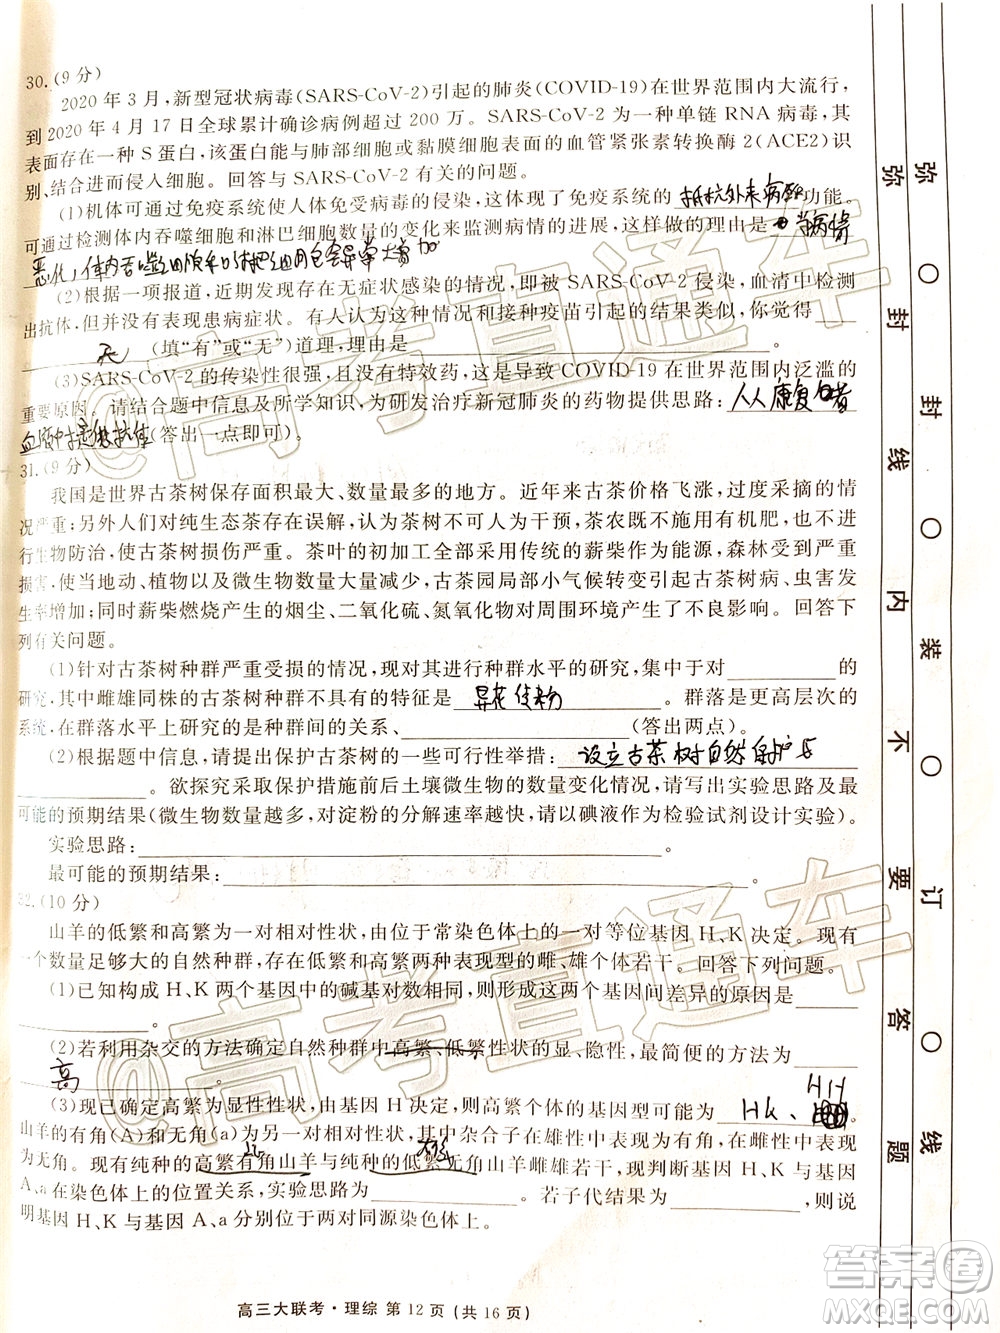 30.(9分)
2020年3月,新型冠状病毒(SARS-CoV-2)引起的肺炎(COVID-19)在世界范围内大流行,
到2020年4月17日全球累计确诊病例超过200万。SARS-CoV-2为一种单链RNA病毒,其
表面存在一种S蛋白,该蛋白能与肺部细胞或黏膜细胞表面的血管紧张素转换酶2(ACE2)识
别、结合进而侵入细胞。回答与SARS-CoV-2有关的问题。
(1)机体可通过免疫系统使人体免受病毒的侵染,这体现了免疫系统的抵抗外来病原功能。
可通过检测体内吞噬细胞和淋巴细胞数量的变化来监测病情的进展,这样做的理由是当病情
恶化,体内吞噬细胞和淋巴细胞会异常增加
(2)根据一项报道,近期发现存在无症状感染的情况,即被SARS-CoV-2侵染,血清中检测
出抗体,但并没有表现患病症状。有人认为这种情况和接种疫苗引起的结果类似,你觉得
无(填“有”或“无”)道理,理由是。
(3)SARS-CoV-2的传染性很强,且没有特效药,这是导致COVID-19在世界范围内泛滥的
重要原因。请结合题中信息及所学知识,为研发治疗新冠肺炎的药物提供思路:从康复患者
血液中提取抗体(答出一点即可)。
31.(9分)
我国是世界古茶树保存面积最大、数量最多的地方。近年来古茶树价格飞涨,过度采摘的情
况严重;另外人们对纯生态茶存在误解,认为茶树不能施用化学肥料,茶农既不施用有机肥,也不进
行生物防治,使古茶树损伤严重。茶叶的初加工全部采用传统的薪柴作为能源,森林受到严重
损害,使当地动、植物以及微生物数量大量减少,古茶园局部小气候转变引起古茶树病、虫害发
生率增加;同时薪柴燃烧产生的烟尘、二氧化硫、氮氧化物对周围环境产生了极大影响。回答下
列有关问题。
(1)针对古茶树种群严重受损的情况,现对其进行种群水平的研究,集中于对的
研究,其中雌雄同株的古茶树种群不具有的特征是异花传粉。群落是更高层次的
系统,在群落水平上研究的是种群间的关系、(答出两点)。
(2)根据题中信息,请提出保护古茶树的一些可行性举措:设立古茶树自然保护区
。欲探究采取保护措施前后土壤微生物的数量变化情况,请写出实验思路及最
可能的预期结果(微生物数量越多,对淀粉的分解速率越快,请以碘液作为检验试剂设计实验)。
实验思路:
最可能的预期结果:。
32.(10分)
山羊的低繁和高繁为一对相对性状,由位于常染色体上的一对等位基因H、K决定。现有
一个数量足够大的自然种群,存在低繁和高繁两种表现型的雌、雄个体若干。回答下列问题。
(1)已知构成H、K两个基因中的碱基对数相同,则这两个基因间差异的原因是
。
(2)若利用杂交的方法确定自然种群中高繁、低繁性状的显、隐性,最简便的方法为
高。
(3)现已确定高繁为显性性状,由基因H决定,则高繁个体的基因型可能为HK、HH。
山羊的有角(A)和无角(a)为另一对相对性状,其中杂合子在雄性中表现为有角,在雌性中表现为
无角。现有纯种的高繁有角山羊与纯种的低繁无角山羊雌雄若干,现判断基因H、K与基因
A、a在染色体上的位置关系,实验思路为。若子代结果为,则说
明基因H、K与基因A、a分别位于两对同源染色体上。
高三大联考·理综 第12页(共16页)
弥 封 线 内 不 要 答 题
弥 封 装 订 线
@高考直通车
@高考直通车
答案圈
MXQE.COM